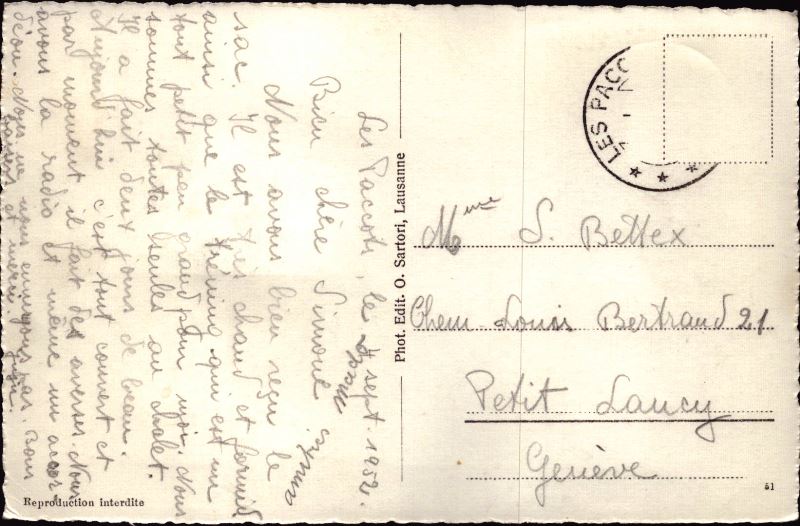 Les Paccots, le 4 sept. 1952.
Bien chère Simone
Nous avons bien reçu le
sac. Il est très chaud et formid
ainsi que le tréning qui est un
tout petit peu grand pour moi. Nous
sommes toutes seules au chalet.
Il a fait deux jours de beau.
Aujourd'hui c'est tout couvert et
par moment il fait des averses. Nous
avons la radio et même un accor
déon. Nous ne nous ennuyons pas. Bons
baisers et merci.
Phot. Edit. O. Sartori, Lausanne
LES PACC
Mme S. Bettex
Chem. Louis Bertrand 21
Petit Lancy
Genève
Reproduction interdite
51